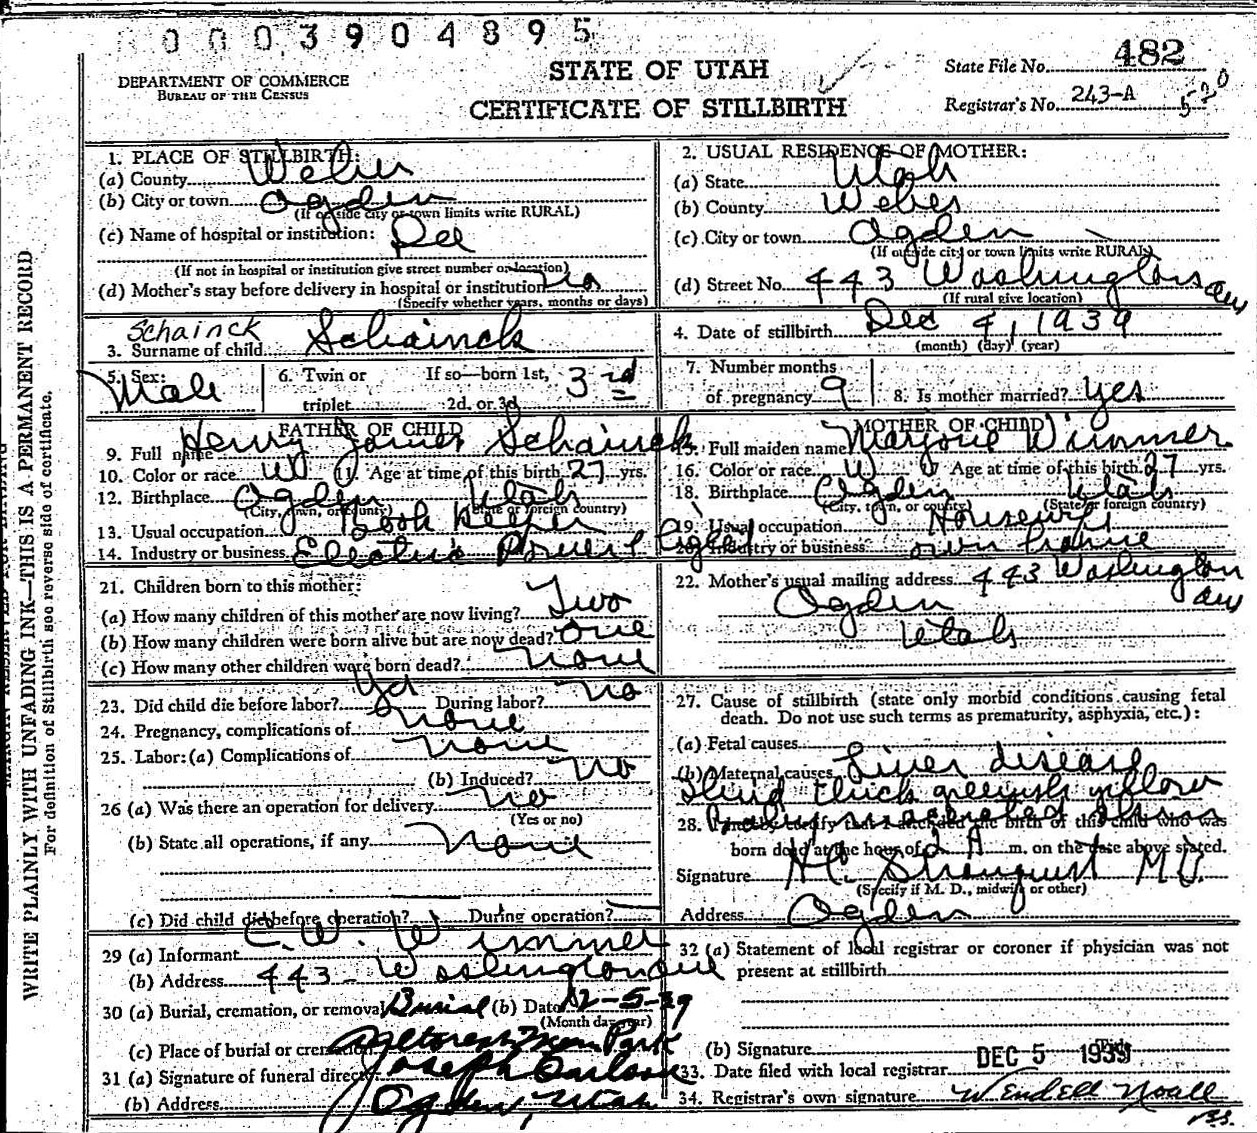 0003904895
DEPARTMENT OF COMMERCE
BUREAU OF THE CENSUS
STATE OF UTAH
CERTIFICATE OF STILLBIRTH
State File No. 482
Registrar's No. 243-A 520
WRITE PLAINLY WITH UNFADING INK—THIS IS A PERMANENT RECORD
For definition of Stillbirth see reverse side of certificate.
1. PLACE OF STILLBIRTH:
(a) County Weber
(b) City or town Ogden
(If outside city or town limits write RURAL)
(c) Name of hospital or institution: Dee
(If not in hospital or institution give street number or location)
(d) Mother's stay before delivery in hospital or institution no
(Specify whether years, months or days)
2. USUAL RESIDENCE OF MOTHER:
(a) State Utah
(b) County Weber
(c) City or town Ogden
(If outside city or town limits write RURAL)
(d) Street No. 443 Washington ave
(If rural give location)
Schainck
3. Surname of child Schainck
4. Date of stillbirth Dec 4, 1939
(month) (day) (year)
5. Sex: Male
6. Twin or triplet If so—born 1st, 2d. or 3d. 3rd
7. Number months of pregnancy 9
8. Is mother married? Yes
FATHER OF CHILD
9. Full name Henry James Schainck
10. Color or race W 11. Age at time of this birth 27 yrs.
12. Birthplace Ogden Utah
(City, town, or county) (State or foreign country)
13. Usual occupation Book Keeper
14. Industry or business Electric Power & Light
MOTHER OF CHILD
15. Full maiden name Marjorie Wimmer
16. Color or race W Age at time of this birth 27 yrs.
18. Birthplace Ogden Utah
(City, town, or county) (State or foreign country)
19. Usual occupation Housewife
20. Industry or business own home
21. Children born to this mother:
(a) How many children of this mother are now living? Two
(b) How many children were born alive but are now dead? one
(c) How many other children were born dead? none
22. Mother's usual mailing address 443 Washington ave
Ogden
Utah
23. Did child die before labor? Yes During labor? no
24. Pregnancy, complications of none
25. Labor: (a) Complications of none
(b) Induced? no
26 (a) Was there an operation for delivery no
(Yes or no)
(b) State all operations, if any none
(c) Did child die before operation? During operation?
27. Cause of stillbirth (state only morbid conditions causing fetal
death. Do not use such terms as prematurity, asphyxia, etc.):
(a) Fetal causes
(b) Maternal causes Liver disease
fluid thick greenish yellow
baby macerated
28. I hereby certify that I attended the birth of this child who was
born dead at the hour of A m. on the date above stated.
Signature H.C. Stranquist M D.
(Specify if M. D., midwife or other)
Address Ogden
29 (a) Informant C. W. Wimmer
(b) Address 443 - Washington ave
30 (a) Burial, cremation, or removal Burial (b) Date 12-5-39
(Month day year)
(c) Place of burial or cremation Aultorest Mem Park
31 (a) Signature of funeral director Joseph Carlson
(b) Address Ogden, Utah
32 (a) Statement of local registrar or coroner if physician was not
present at stillbirth
(b) Signature
33. Date filed with local registrar DEC 5 1939
34. Registrar's own signature Wendell Noall